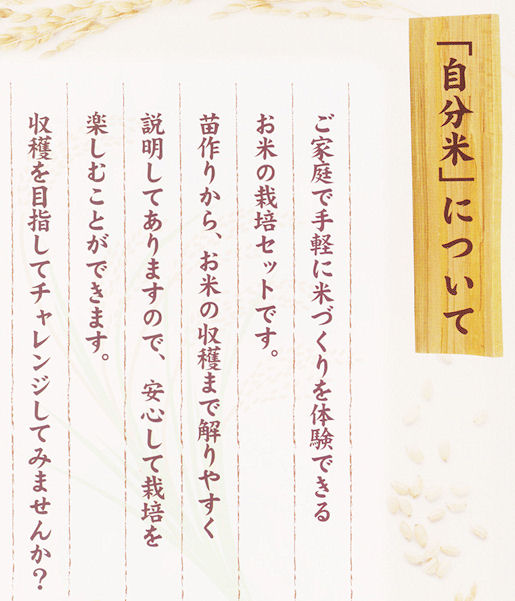 「自分米」について
ご家庭で手軽に米づくりを体験できる
お米の栽培セットです。
苗作りから、お米の収穫まで解りやすく
説明してありますので、安心して栽培を
楽しむことができます。
収穫を目指してチャレンジしてみませんか？